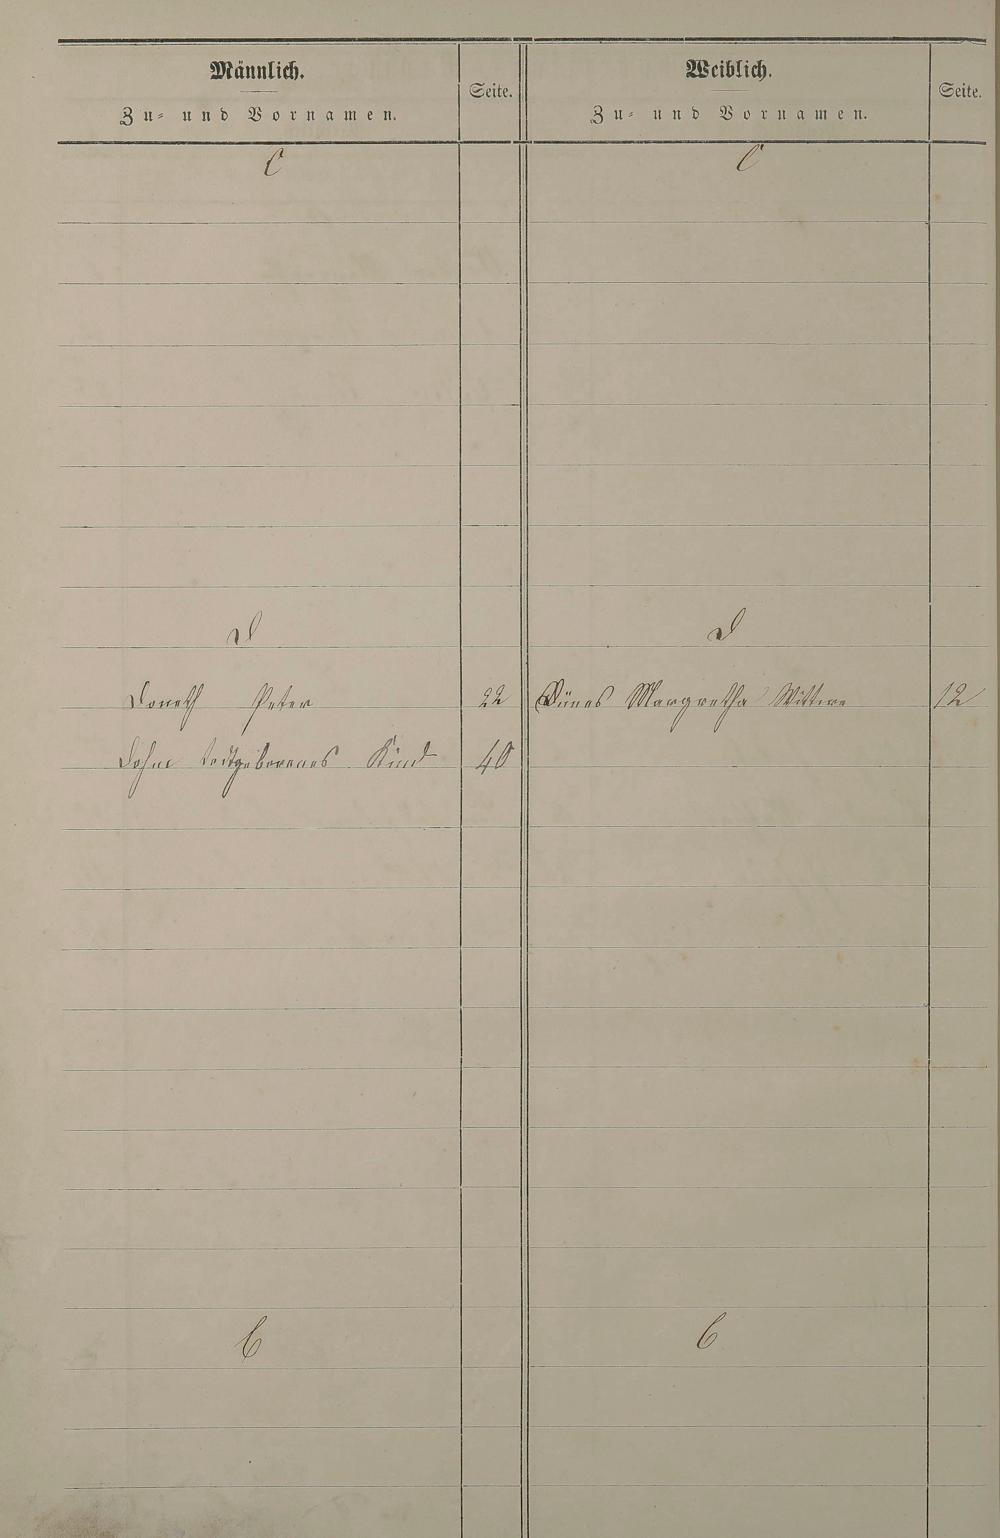 Männlich.
Zu- und Vornamen.
Seite.
Weiblich.
Zu- und Vornamen.
Seite.
C
C
D
D
Peter 22
Dünes Margretha Wittwe 12
Dohm todtgeborenes Kind 40
E
E